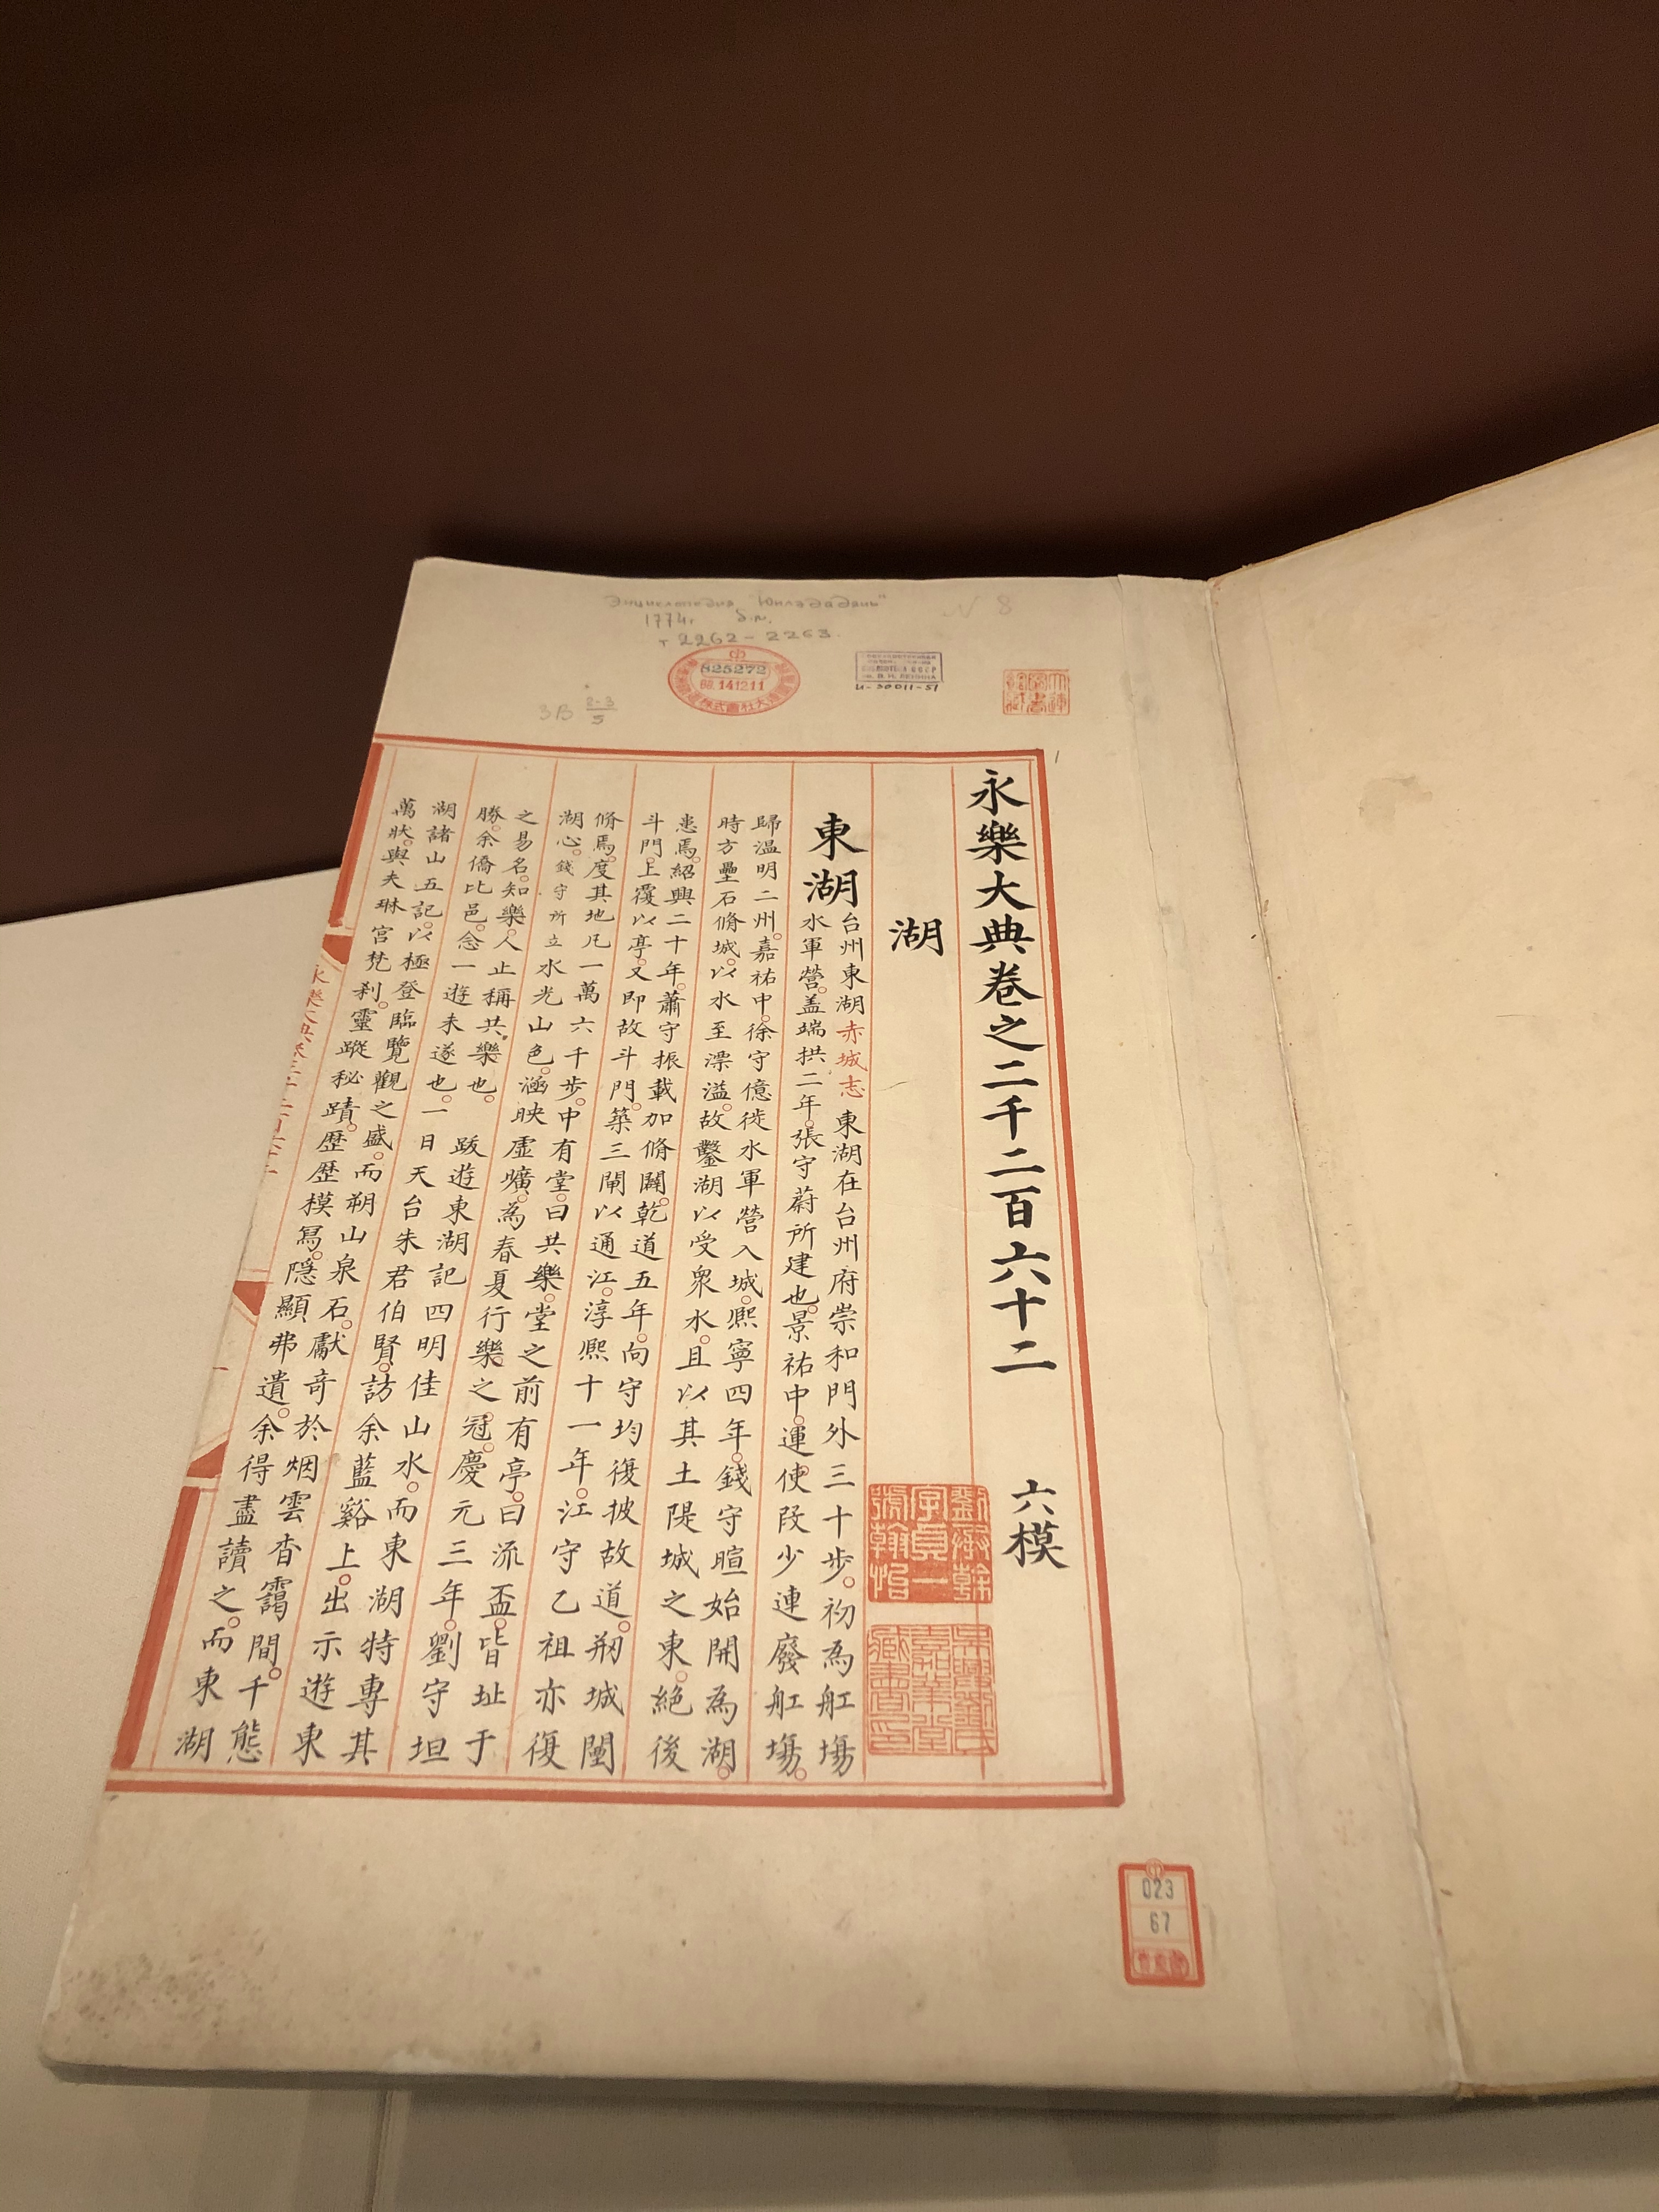 Энциклопедия "Юнлэдадянь"
1774г. б.м.
т 2262-2263.
N 8
825272
昭 14.12.11
И-30011-51
3В 2-3
5
永樂大典卷之二千二百六十二 六模
湖
東湖
台州東湖赤城志 東湖在台州府崇和門外三十步。初為舡塲
水軍營。蓋端拱二年。張守蔚所建也。景祐中。運使段少連廢舡塲。
歸溫明二州。嘉祐中。徐守億徙水軍營入城。熙寧四年。錢守暄始開為湖。
時方壘石脩城。以水至漂溢。故鑿湖以受衆水。且以其土隄城之東。絕後
患焉。紹興二十年。蕭守振載加脩闢。乾道五年。向守均復披故道。剏城闉
斗門。上覆以亭。又即故斗門。築三閘以通江。淳熙十一年。江守乙祖亦復
脩焉。度其地凡一萬六千步。中有堂。曰共樂。堂之前有亭。曰流盃。皆址于
湖心。錢守所立水光山色。涵映虛曠。為春夏行樂之冠。慶元三年。劉守坦
之易名。知樂。人止稱共樂也。 跋遊東湖記四明佳山水。而東湖特專其
勝。余僑比邑。念一遊未遂也。一日天台朱君伯賢。訪余藍谿上。出示遊東
湖諸山五記。以極登臨覽觀之盛。而朔山泉石。獻奇於烟雲杳靄間。千態
萬狀。與夫琳宮梵刹。靈蹤秘蹟。歷歷模冩。隱顯弗遺。余得盡讀之。而東湖
劉承幹字貞一號翰怡
吳興劉氏嘉業堂藏書印
023
67